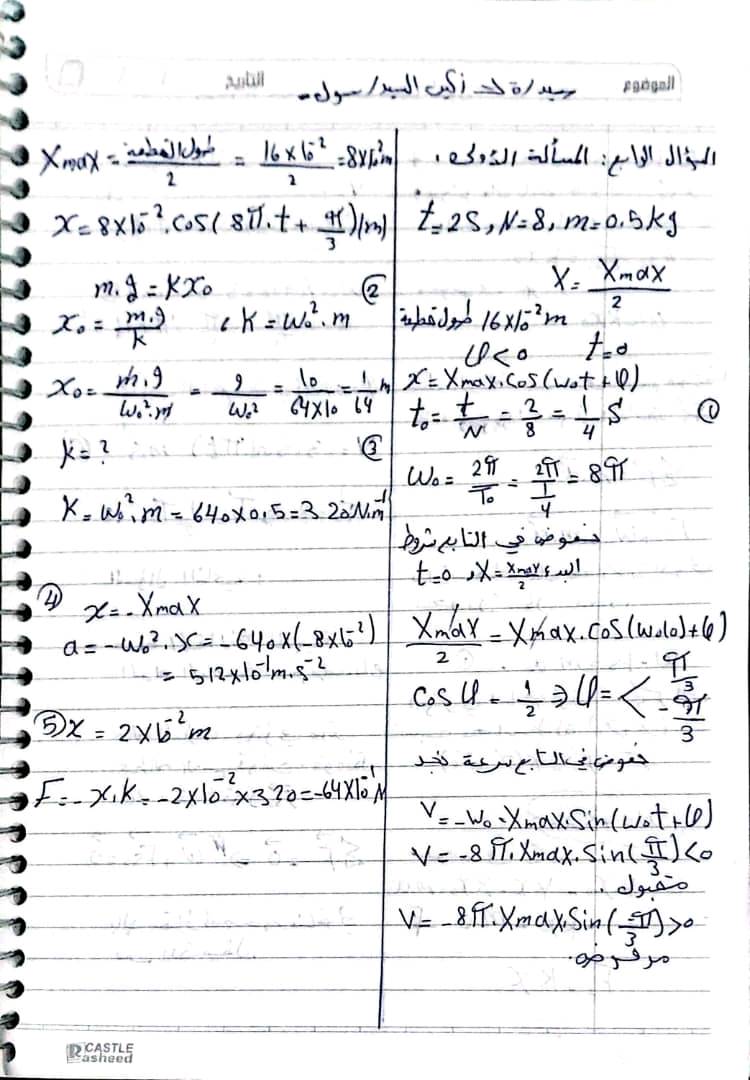 الموضوع
التاريخ
السؤال الرابع: المسألة الأولى:
t=2S, N=8, m=0.5kg
X = Xmax/2
16×10⁻²m طول قطعة
φ<0 t=0
x=Xmax.cos(ω₀t+φ)
① t₀=t/N=2/8=1/4 S
ω₀=2π/T₀=2π/(1/4)=8π
نعوض في التابع شروط
البدء X=Xmax/2, t=0
Xmax/2=Xmax.cos(ω₀(0)+φ)
cosφ=1/2 ⇒ φ=< π/3
-π/3
نعوض في التابع سرعة نجد
V=-ω₀.Xmax.Sin(ω₀t+φ)
V=-8π.Xmax.Sin(π/3)<0
مقبول.
V=-8π.Xmax.Sin(-π/3)>0
مرفوض.
Xmax=طول القطعة/2=16×10⁻²/2=8×10⁻²m
x=8×10⁻².cos(8π.t+π/3)(m)
② m.g=Kx₀
x₀=m.g/k , K=ω₀².m
x₀=m.g/ω₀².m=g/ω₀²=10/64×10=1/64 m
③ k=?
K=ω₀².m=640×0,5=320N.m⁻¹
④ x=-Xmax
a=-ω₀².x=-640×(-8×10⁻²)
=512×10⁻¹m.s⁻²
⑤ x=2×10⁻²m
F=-x.k=-2×10⁻²×320=-64×10⁻¹N
CASTLE
Rasheed